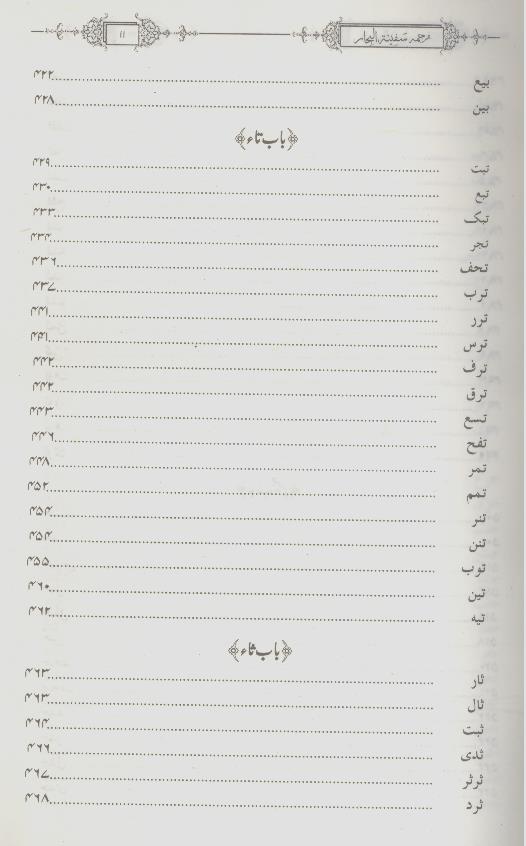 ترجمہ سفینۃ البحار ۱۱
بیع ۴۲۲
بین ۴۲۸
﴿باب تاء﴾
تبت ۴۲۹
تبع ۴۳۰
تبک ۴۳۳
تجر ۴۳۴
تحف ۴۳۶
ترب ۴۳۷
ترر ۴۴۱
ترس ۴۴۱
ترف ۴۴۲
ترق ۴۴۲
تسع ۴۴۳
تفح ۴۴۶
تمر ۴۴۸
تمم ۴۵۲
تنر ۴۵۴
تنن ۴۵۴
توب ۴۵۵
تین ۴۶۰
تیه ۴۶۲
﴿باب ثاء﴾
ثار ۴۶۳
ثال ۴۶۳
ثبت ۴۶۴
ثدی ۴۶۶
ثرثر ۴۶۷
ثرد ۴۶۸